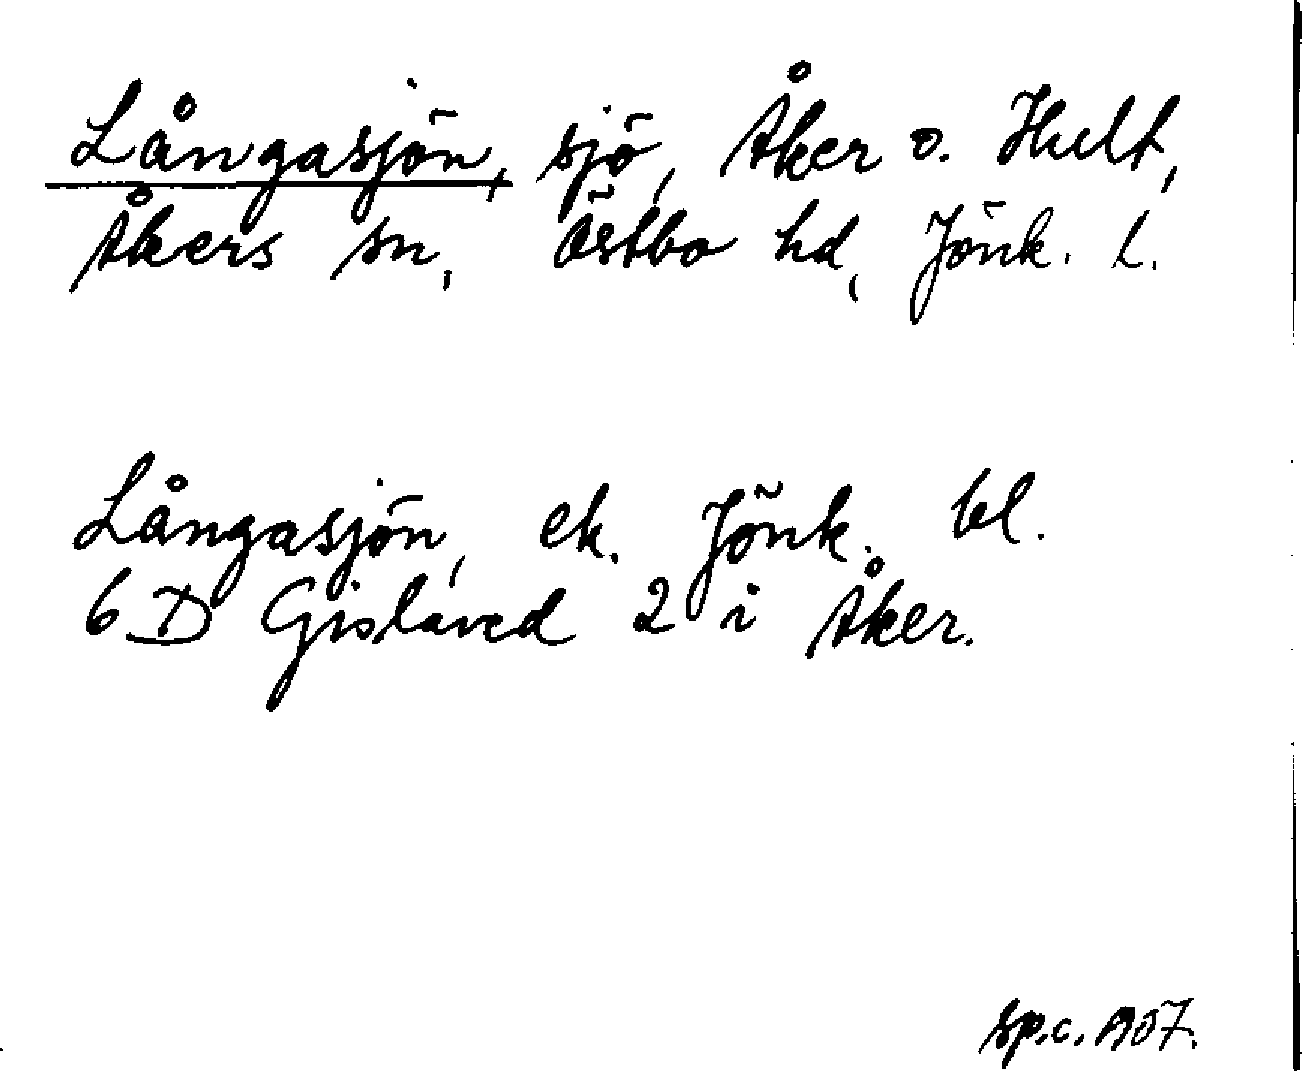 Långasjön, sjö, Åker o. Hult,
Åkers sn, Östbo hd, Jönk. l.
Långasjön, ek. Jönk. bl.
6 D Gislaved 2 i Åker.
sp.c. 1957.